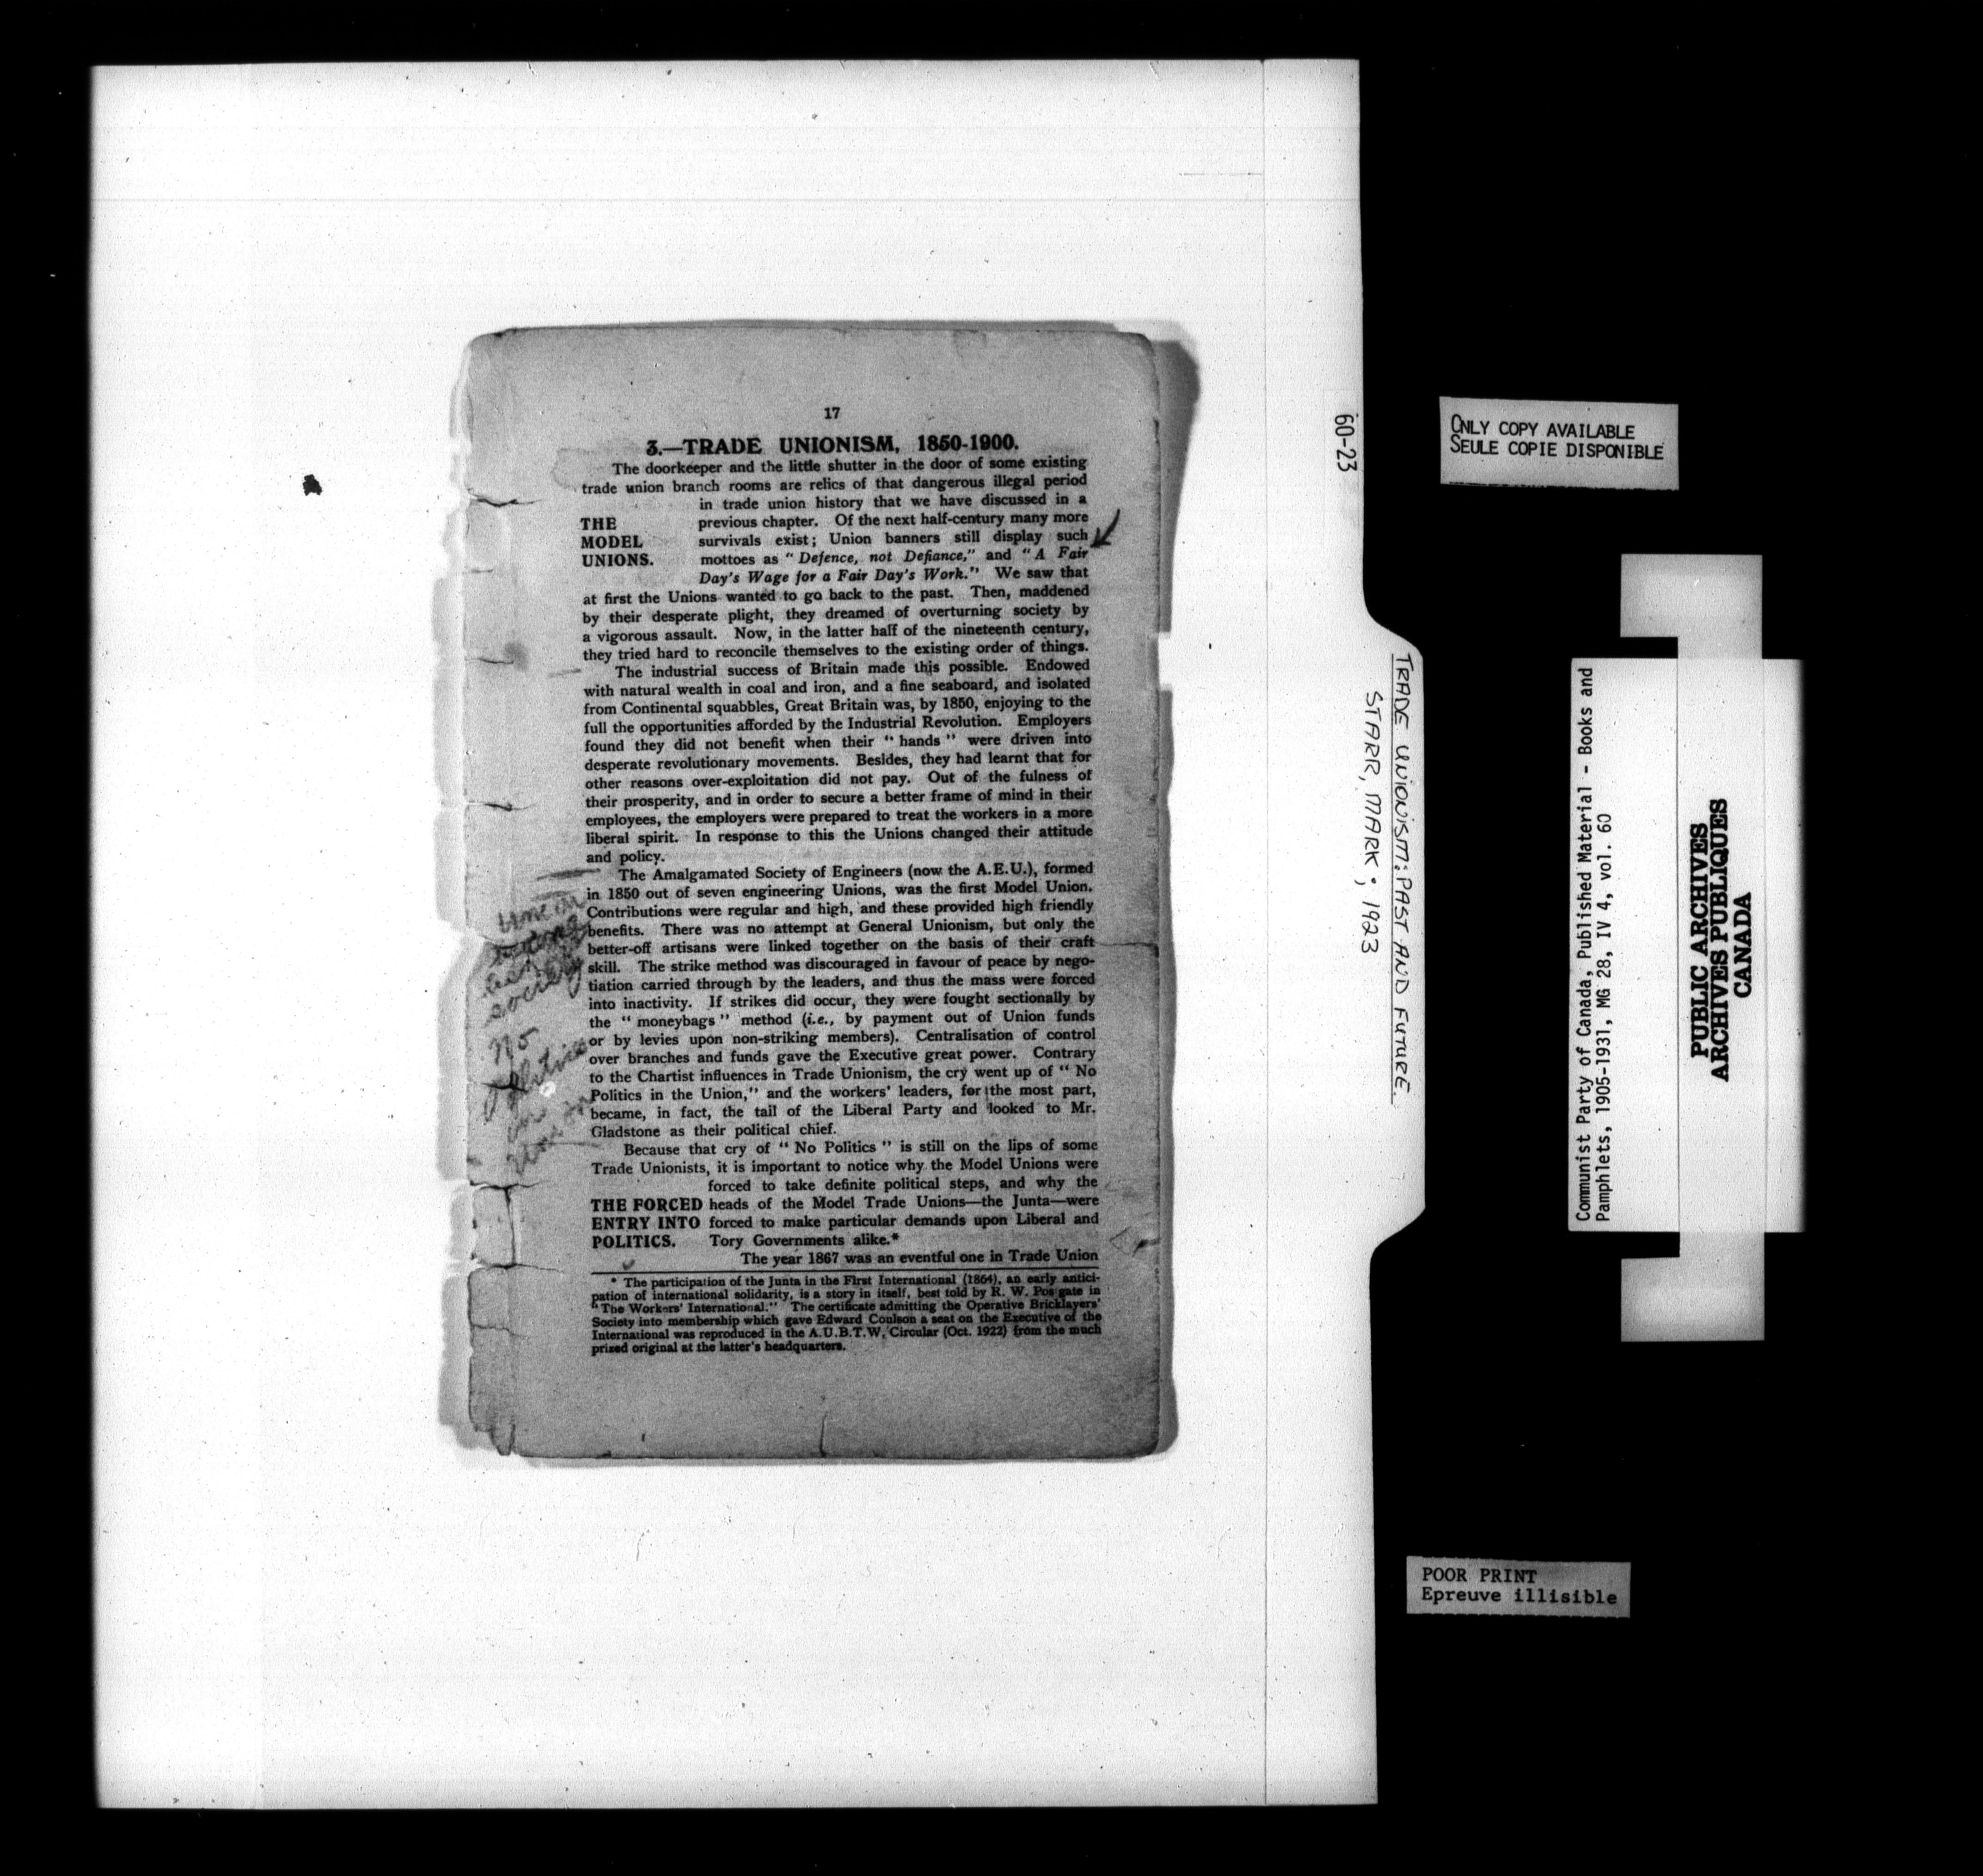 17
3.—TRADE UNIONISM, 1850-1900.
The doorkeeper and the little shutter in the door of some existing
trade union branch rooms are relics of that dangerous illegal period
in trade union history that we have discussed in a
THE MODEL UNIONS.
previous chapter. Of the next half-century many more
survivals exist; Union banners still display such
mottoes as "Defence, not Defiance," and "A Fair
Day's Wage for a Fair Day's Work." We saw that
at first the Unions wanted to go back to the past. Then, maddened
by their desperate plight, they dreamed of overturning society by
a vigorous assault. Now, in the latter half of the nineteenth century,
they tried hard to reconcile themselves to the existing order of things.
The industrial success of Britain made this possible. Endowed
with natural wealth in coal and iron, and a fine seaboard, and isolated
from Continental squabbles, Great Britain was, by 1850, enjoying to the
full the opportunities afforded by the Industrial Revolution. Employers
found they did not benefit when their "hands" were driven into
desperate revolutionary movements. Besides, they had learnt that for
other reasons over-exploitation did not pay. Out of the fulness of
their prosperity, and in order to secure a better frame of mind in their
employees, the employers were prepared to treat the workers in a more
liberal spirit. In response to this the Unions changed their attitude
and policy.
The Amalgamated Society of Engineers (now the A.E.U.), formed
in 1850 out of seven engineering Unions, was the first Model Union.
Contributions were regular and high, and these provided high friendly
benefits. There was no attempt at General Unionism, but only the
better-off artisans were linked together on the basis of their craft
skill. The strike method was discouraged in favour of peace by nego-
tiation carried through by the leaders, and thus the mass were forced
into inactivity. If strikes did occur, they were fought sectionally by
the "moneybags" method (i.e., by payment out of Union funds
or by levies upon non-striking members). Centralisation of control
over branches and funds gave the Executive great power. Contrary
to the Chartist influences in Trade Unionism, the cry went up of "No
Politics in the Union," and the workers' leaders, for the most part,
became, in fact, the tail of the Liberal Party and looked to Mr.
Gladstone as their political chief.
Because that cry of "No Politics" is still on the lips of some
Trade Unionists, it is important to notice why the Model Unions were
forced to take definite political steps, and why the
THE FORCED heads of the Model Trade Unions—the Junta—were
ENTRY INTO forced to make particular demands upon Liberal and
POLITICS. Tory Governments alike.*
The year 1867 was an eventful one in Trade Union
* The participation of the Junta in the First International (1864), an early antici-
pation of international solidarity, is a story in itself, best told by R. W. Postgate in
"The Workers' International." The certificate admitting the Operative Bricklayers'
Society into membership which gave Edward Coulson a seat on the Executive of the
International was reproduced in the A.U.B.T.W. Circular (Oct. 1922) from the much
prized original at the latter's headquarters.
society
no
politics
in
60-23
TRADE UNIONISM: PAST AND FUTURE.
STARR, MARK; 1923
ONLY COPY AVAILABLE
SEULE COPIE DISPONIBLE
Communist Party of Canada, Published Material - Books and
Pamphlets, 1905-1931, MG 28, IV 4, vol. 60
PUBLIC ARCHIVES
ARCHIVES PUBLIQUES
CANADA
POOR PRINT
Epreuve illisible